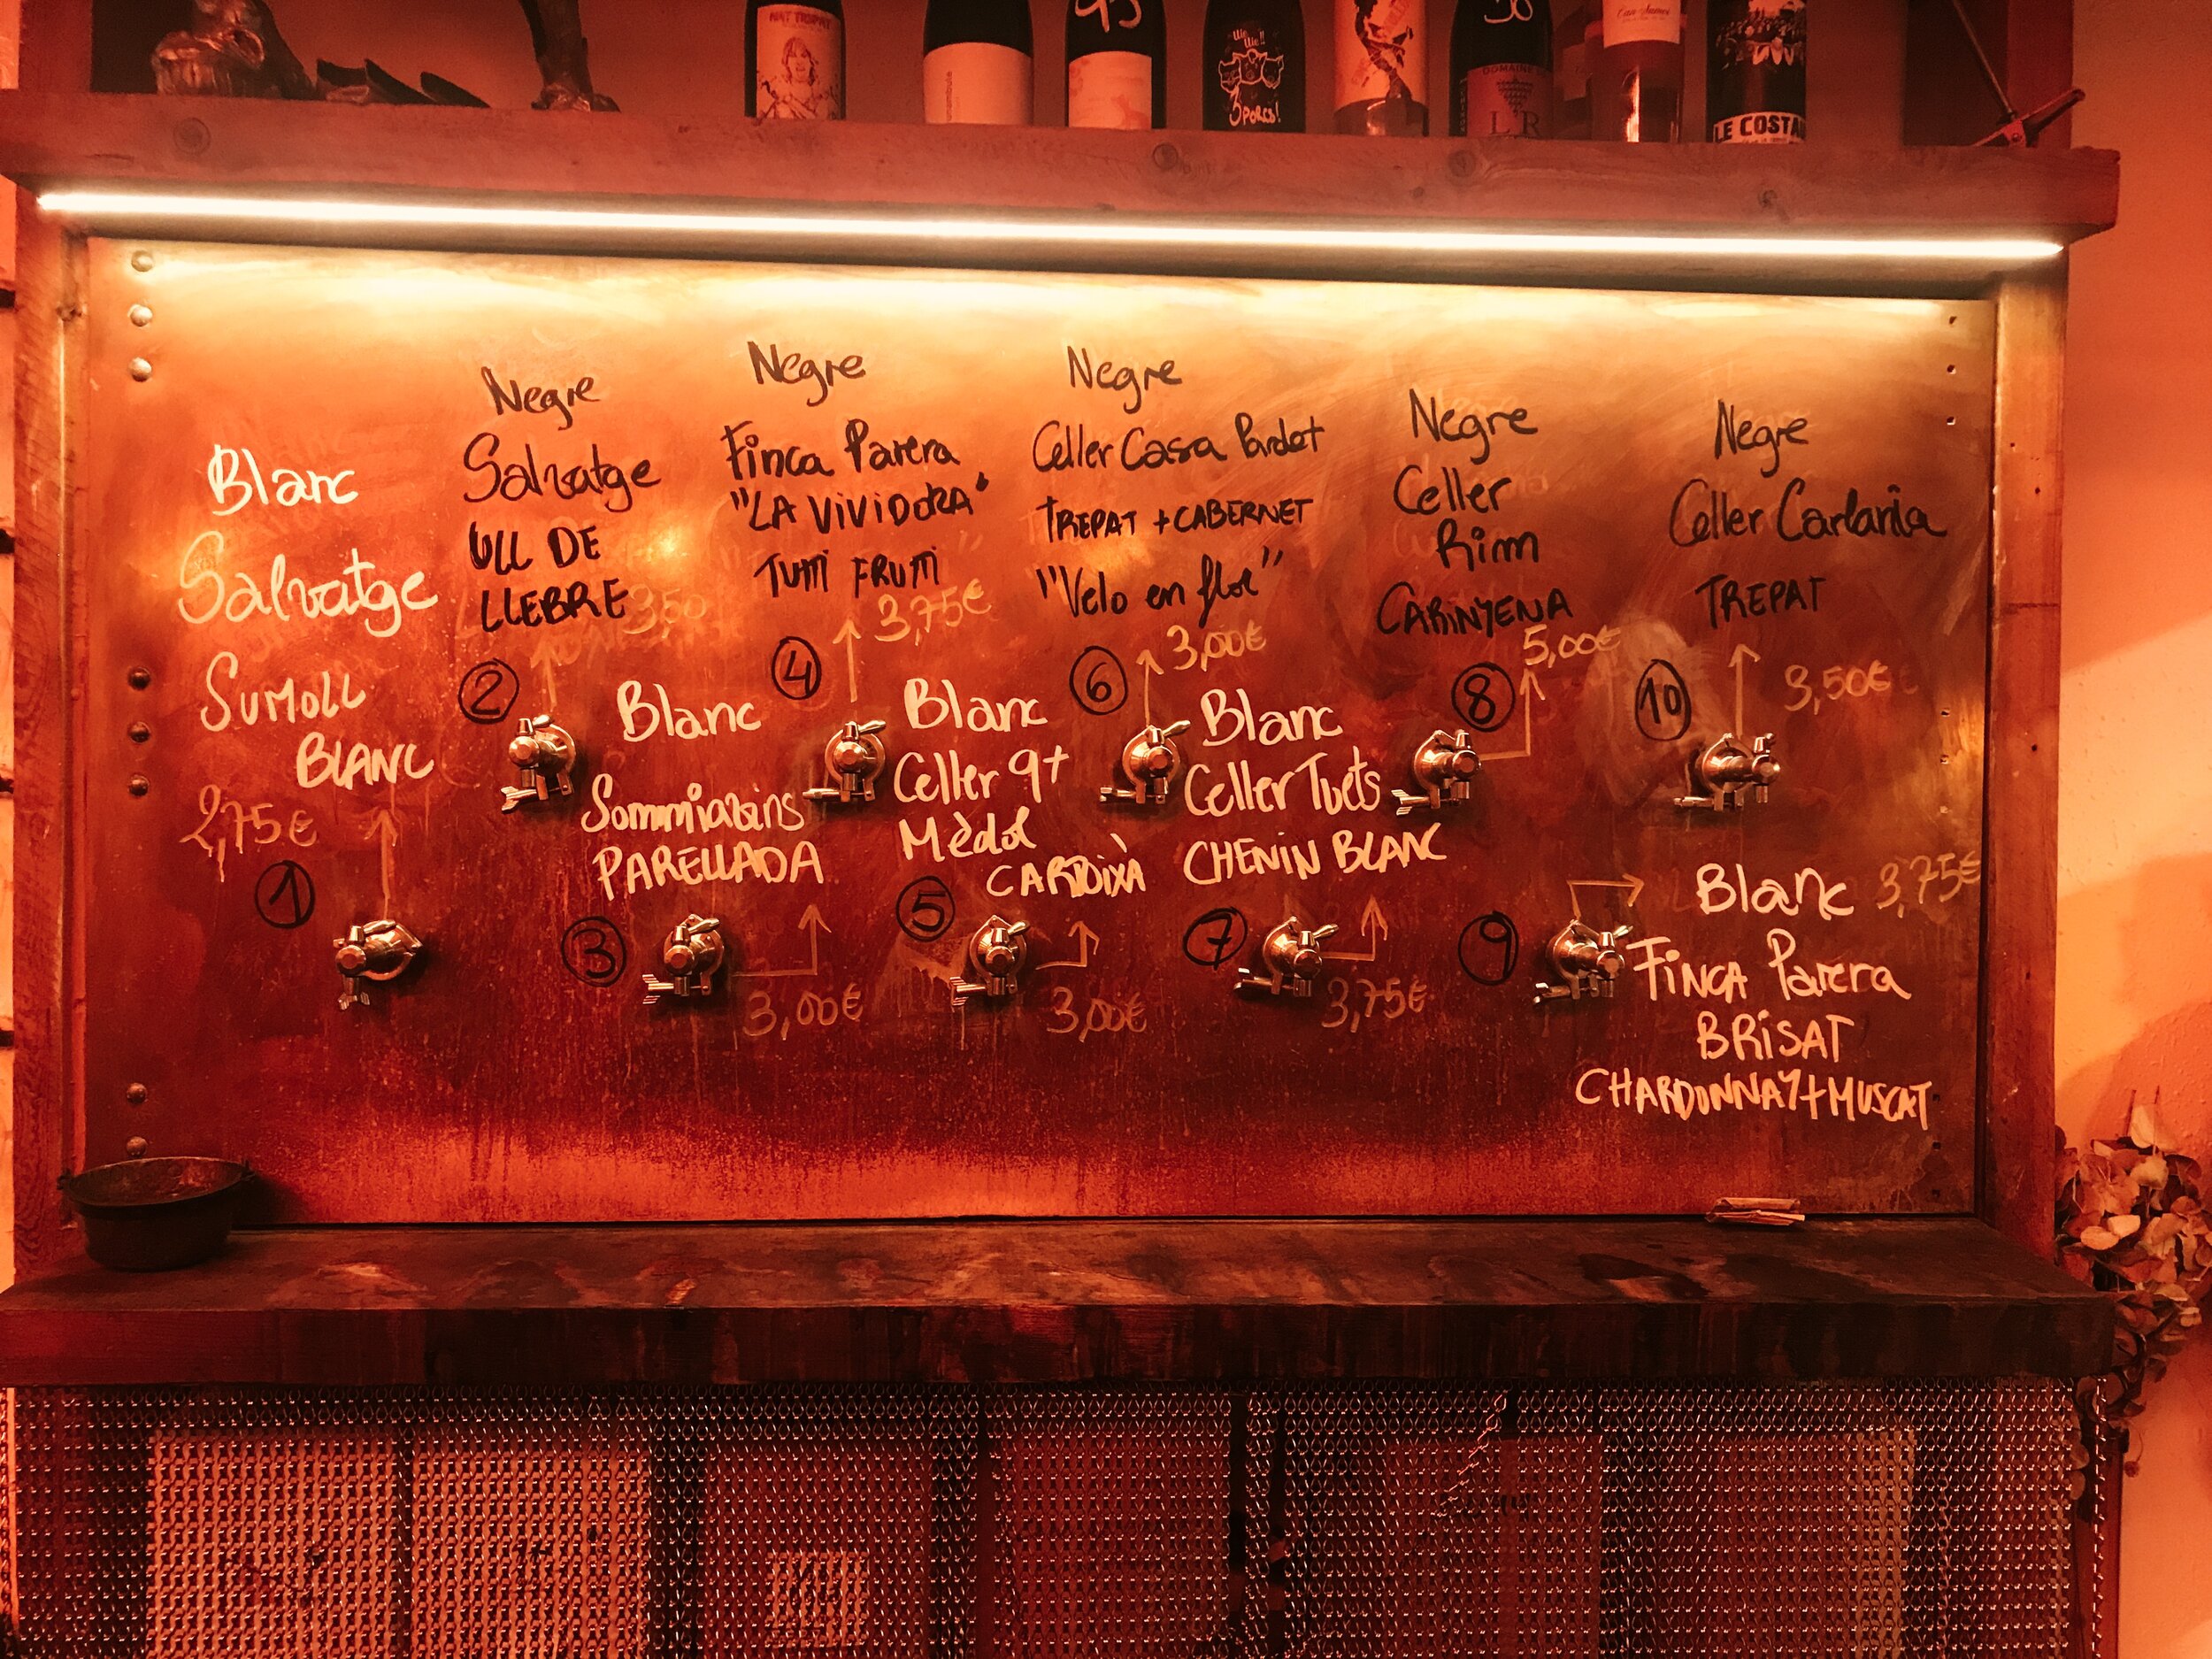 93
30
Can Sumoi
3 PORCS!
DOMAINE
L R
LE COSTA
Blanc
Salvatge
SUMOLL
BLANC
2,75€
1
Negre
Salvatge
ULL DE
LLEBRE
3,50
2
Blanc
Sommiatins
PARELLADA
3
3,00€
Negre
Finca Parera
"LA VIVIDORA"
TUTTI FRUTTI
3,75€
4
Blanc
Celler 9+
Mèdol
CARTOIXÀ
5
3,00€
Negre
Celler Casa Pardet
TREPAT + CABERNET
"Velo en flor"
3,00€
6
Blanc
Celler Tuets
CHENIN BLANC
7
3,75€
Negre
Celler
Rim
CARINYENA
5,00€
8
Blanc 3,75€
FINCA Parera
BRISAT
CHARDONNAY+MUSCAT
9
Negre
Celler Carlania
TREPAT
3,50€
10